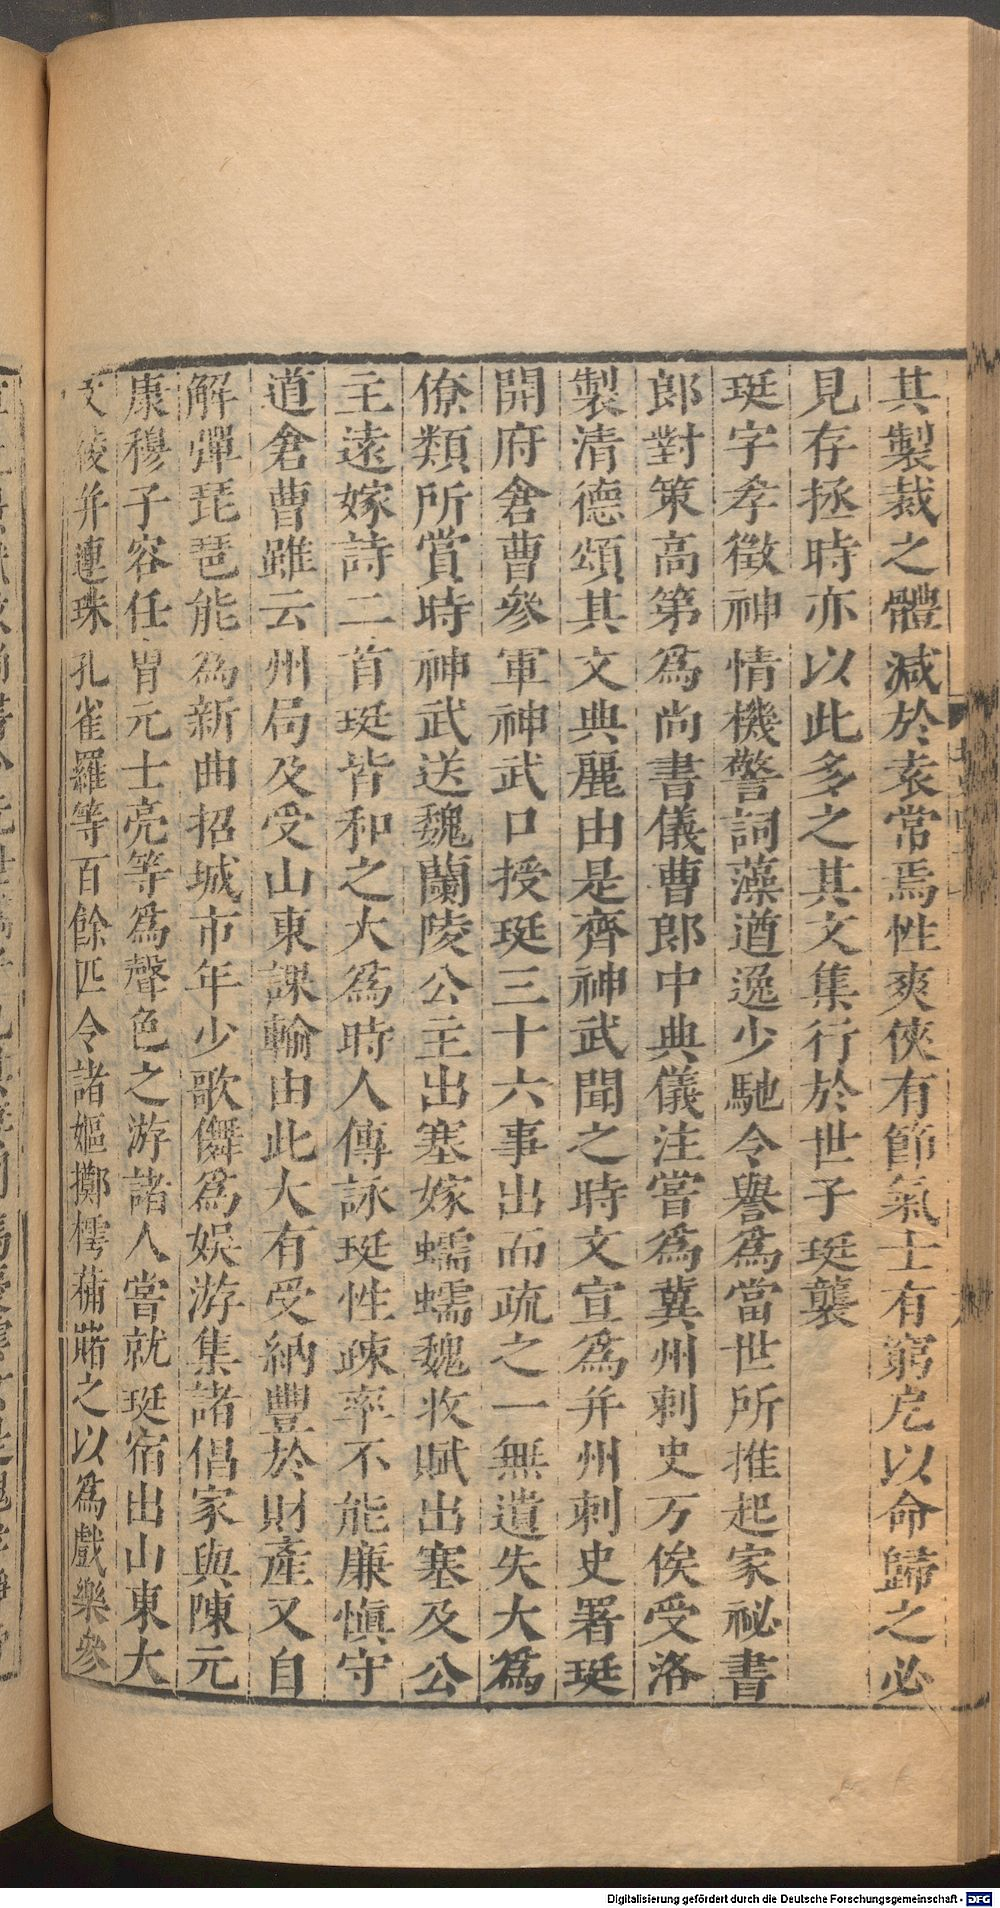 其製裁之體減於袁常焉性爽俠有節氣士有窮戹以命歸之必
見存拯時亦以此多之其文集行於世子珽襲
珽字孝徵神情機警詞藻遒逸少馳令譽爲當世所推起家祕書
郎對策高第爲尚書儀曹郎中典儀注嘗爲冀州刺史万俟受洛
製清德頌其文典麗由是齊神武聞之時文宣爲并州刺史署珽
開府倉曹參軍神武口授珽三十六事出而疏之一無遺失大爲
僚類所賞時神武送魏蘭陵公主出塞嫁蠕蠕魏收賦出塞及公
主遠嫁詩二首珽皆和之大爲時人傳詠珽性疎率不能廉愼守
道倉曹雖云州局及受山東課輸由此大有受納豐於財產又自
解彈琵琶能爲新曲招城市年少歌儛爲娛游集諸倡家與陳元
康穆子容任胄元士亮等爲聲色之游諸人嘗就珽宿出山東大
文綾并連珠孔雀羅等百餘匹令諸嫗擲樗蒱賭之以爲戲樂參
Digitalisierung gefördert durch die Deutsche Forschungsgemeinschaft - DFG